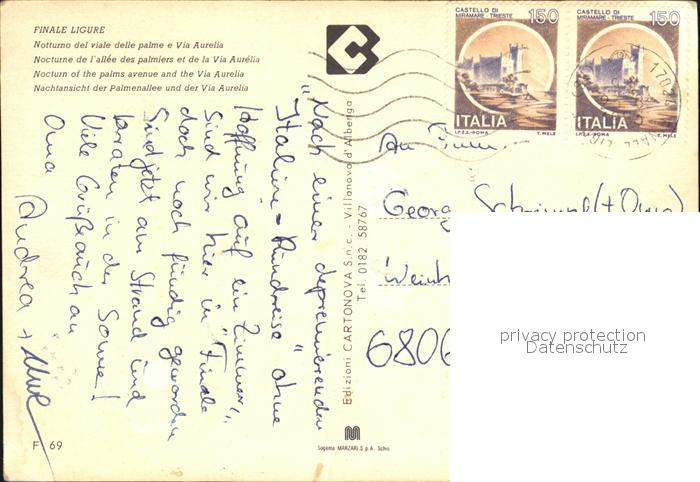 FINALE LIGURE
Notturno del viale delle palme e Via Aurelia
Nocturne de l'allée des palmiers et de la Via Aurélia
Nocturn of the palms avenue and the Via Aurelia
Nachtansicht der Palmenallee und der Via Aurelia
CASTELLO DI
MIRAMARE - TRIESTE
150
ITALIA
I.P.Z.S. - ROMA T. MELE
CASTELLO DI
MIRAMARE - TRIESTE
150
ITALIA
I.P.Z.S. - ROMA T. MELE
Nach einer deprimierenden
"Italien-Rundreise" ohne
Hoffnung auf ein Zimmer,
sind wir hier in "Finale"
doch noch fündig geworden
Sind jetzt am Strand und
braten in der Sonne!
Viele Grüße auch an
Oma
Andrea + Uwe
Edizioni CARTONOVA S.n.c. - Villanova d'Albenga
Tel. 0182 58767
An
Georg (+ Oma)
6806
privacy protection
Datenschutz
F 69
Sagoma MARZARI S.p.A. Schio